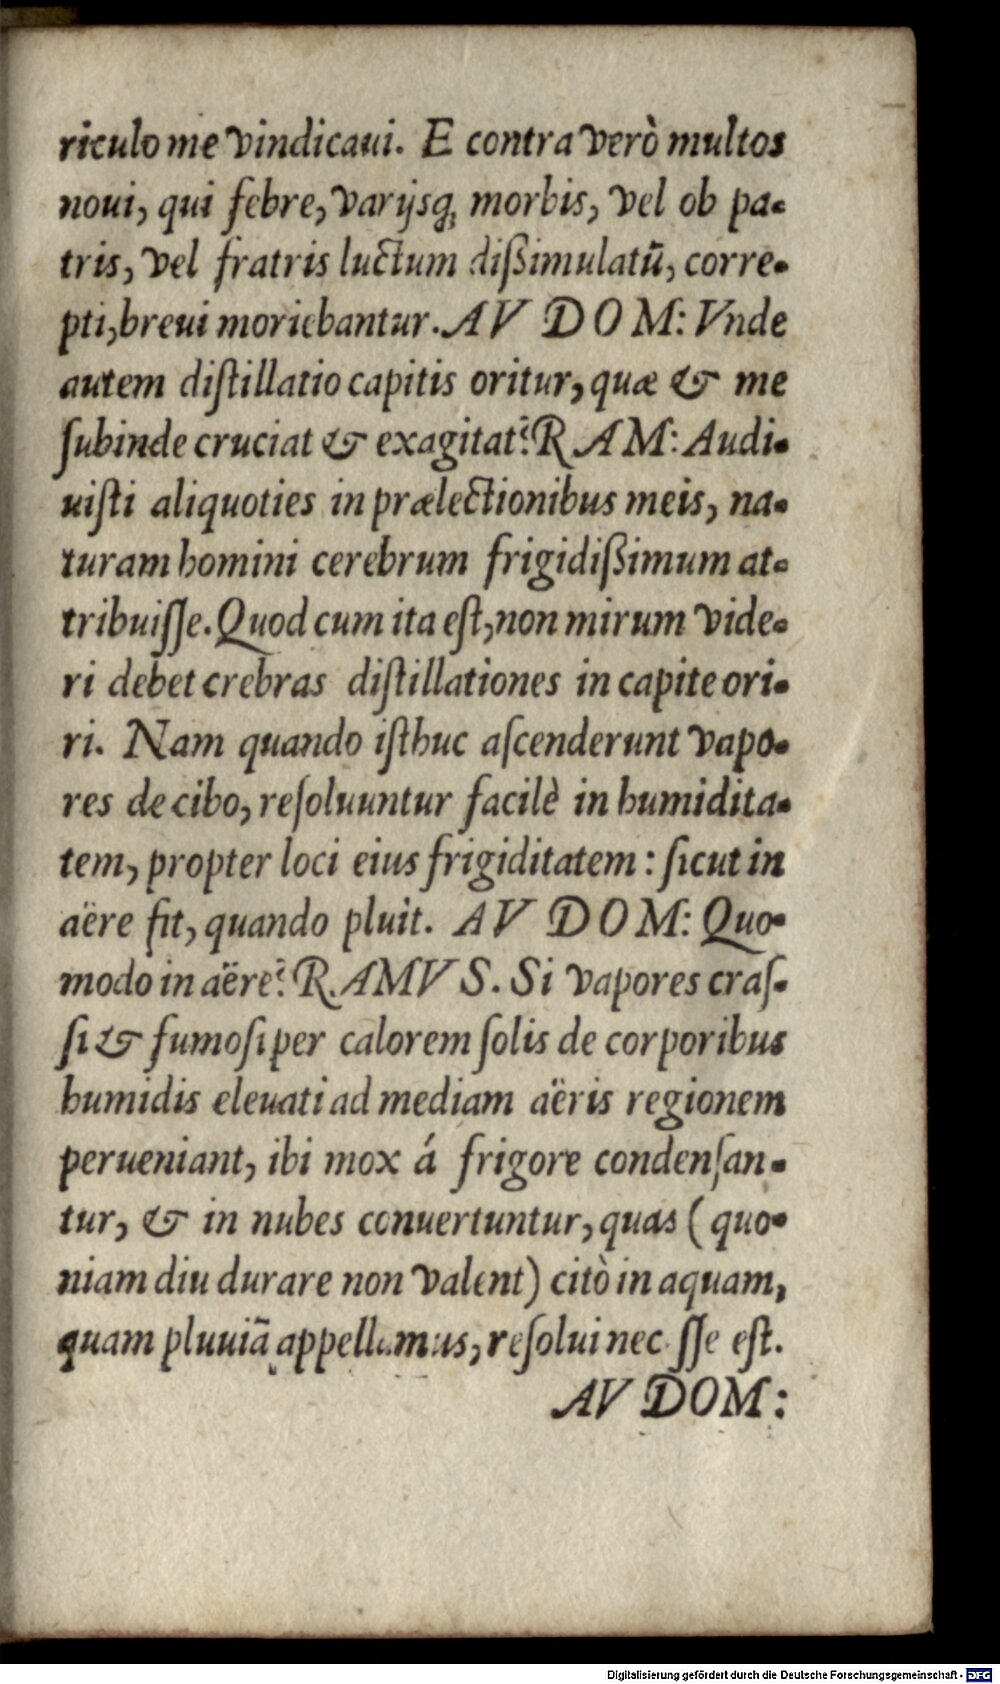 riculo me vindicaui. E contra verò multos
noui, qui febre, varijsq; morbis, vel ob pa-
tris, vel fratris luctum dißimulatũ, corre-
pti, breui moriebantur. AVDOM: Vnde
autem diſtillatio capitis oritur, quæ & me
ſubinde cruciat & exagitat? RAM: Audi-
uiſti aliquoties in prælectionibus meis, na-
turam homini cerebrum frigidißimum at-
tribuiſſe. Quod cum ita eſt, non mirum vide-
ri debet crebras diſtillationes in capite ori-
ri. Nam quando iſthuc aſcenderunt vapo-
res de cibo, reſoluuntur facilè in humidita-
tem, propter loci eius frigiditatem: ſicut in
aëre fit, quando pluit. AVDOM: Quo-
modo in aëre? RAMVS. Si vapores craſ-
ſi & fumoſi per calorem ſolis de corporibus
humidis eleuati ad mediam aëris regionem
perueniant, ibi mox á frigore condenſan-
tur, & in nubes conuertuntur, quas (quo-
niam diu durare non valent) citò in aquam,
quam pluuiã appellamus, reſolui neceſſe eſt.
AVDOM:
Digitalisierung gefördert durch die Deutsche Forschungsgemeinschaft - DFG